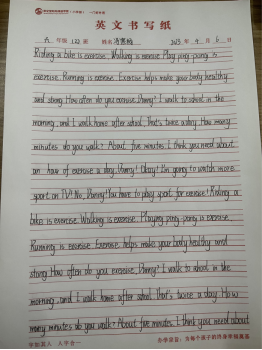 英文书写纸
年级 122 班 姓名 2023 年 4 月 6 日
Riding a bike is exercise. Walking is exercise. Playing ping-pong is
exercise. Running is exercise. Exercise helps make your body healthy
and strong. How often do you exercise, Danny? I walk to school in the
morning, and I walk home after school. That's twice a day. How many
minutes do you walk? About five minutes. I think you need about
an hour of exercise a day, Danny! Okay! I'm going to watch more
sport on TV! No, Danny! You have to play sport for exercise! Riding a
bike is exercise. Walking is exercise. Playing ping-pong is exercise.
Running is exercise. Exercise helps make your body healthy and
strong. How often do you exercise, Danny? I walk to school in the
morning, and I walk home after school. That's twice a day. How
many minutes do you walk? About five minutes. I think you need about
字如其人 人字合一 办学宗旨：为每个孩子的终身幸福奠基